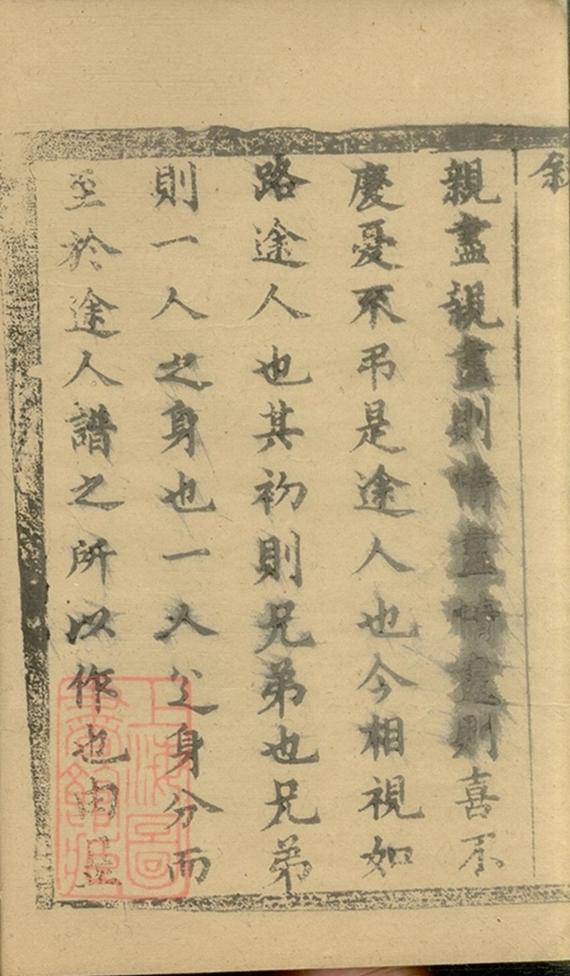 親盡親盡則情盡情盡則喜不
慶憂不弔是途人也今相視如
路途人也其初則兄弟也兄弟
則一人之身也一人之身分而
至於途人譜之所以作也由是
上海圖書館藏